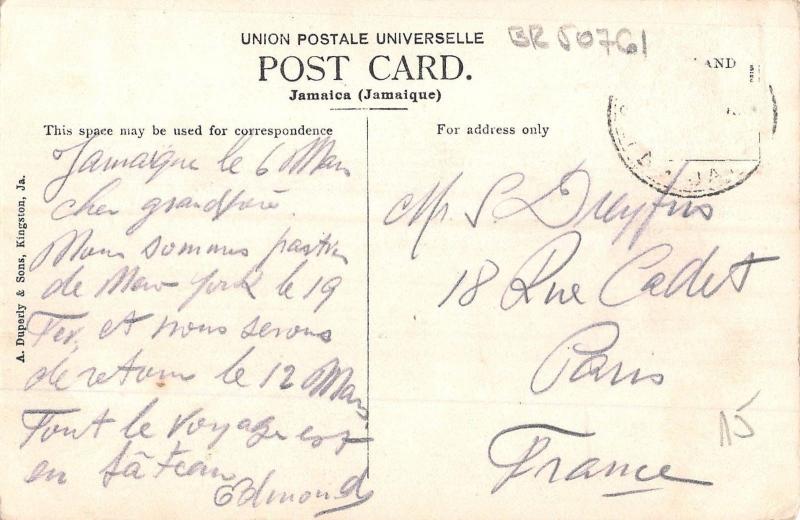 BR 50761
UNION POSTALE UNIVERSELLE
POST CARD.
Jamaica (Jamaique)
AND
This space may be used for correspondence
For address only
A. Duperly & Sons, Kingston, Ja.
Jamaique le 6 Mars
cher grandpère
Nous sommes partis
de New York le 19
Fev. et nous serons
de retour le 12 Mars
Tout le voyage est
en bâteau
Edmond
Mr. S. Dreyfus
18 Rue Cadet
Paris
France
15